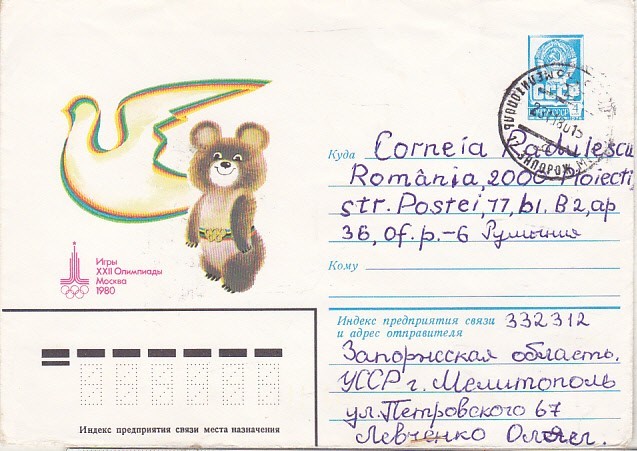 Игры
XXII Олимпиады
Москва
1980
СССР
Куда Corneia Radulescu
România, 2000 Ploiecti
str. Postei, 77, bl. B2, ap
36, of. p.-6 Румыния
Кому
Индекс предприятия связи 332312
и адрес отправителя
Запоржсская область,
УССР г. Мелитополь
ул. Петровского 67
Левченко
Индекс предприятия связи места назначения